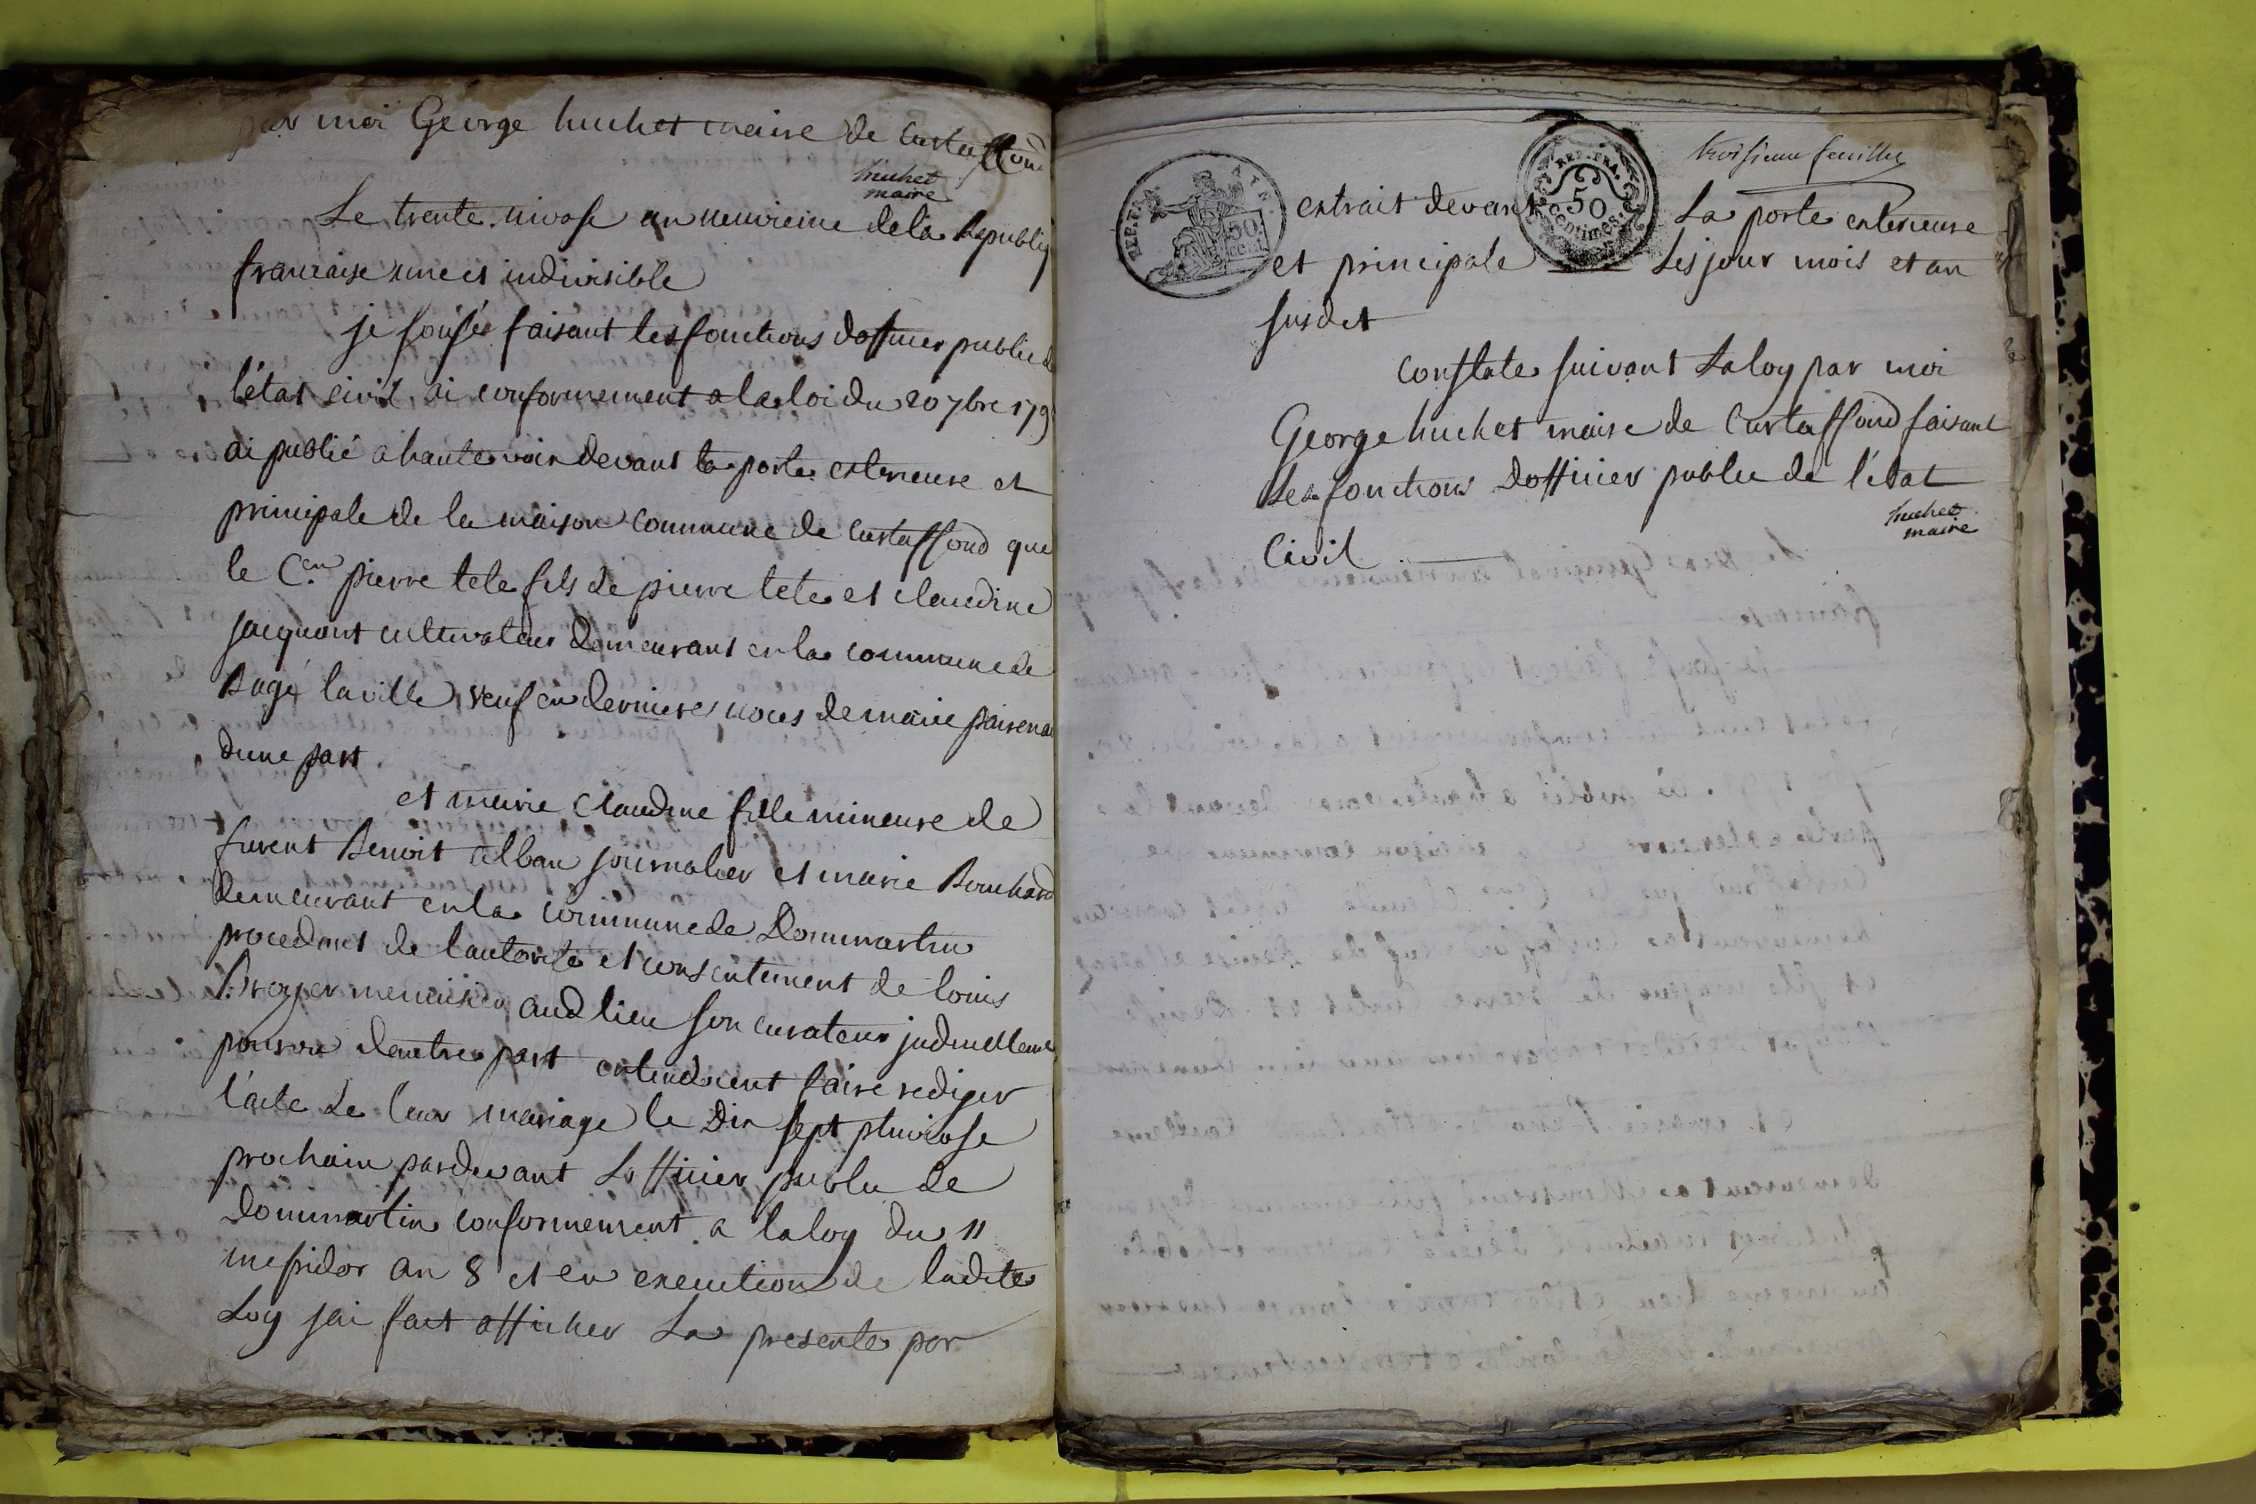 par moi George huchet maire de Curtaffond
huchet
maire
Le trente nivose an neuvieme de la Republiq
francaise une et indivisible
je sousés faisant les fonctions dofficier public de
l'état civil ai conformement a la loi du 20 7bre 179
ai publié a haute voix devant la porte exterieure et
principale de la maison commune de Curtaffond que
le C.en pierre tete fils de pierre tete et claudine
jacquant cultivateur demeurant en la commune de
Bagé laville veuf en dernieres noces de marie
dune part
et marie claudine fille mineure de
furent Benoit alban journalier et marie Bouchard
demeurant en la commune de Dommartin
procedant de lautorité et consentement de louis
Broyer menuisier aud lieu son curateur judicielleme
pourvu dautre part entendoient faire rediger
l'acte de leur mariage le dix sept pluviose
prochain pardevant Lofficier public de
dommartin conformement a la loy du 11
messidor an 8 et en execution de ladite
Loy jai fait afficher La presente par
troisieme feuillet
REP. FRA.
50 cent.
REP. FRA.
50
centimes.
extrait devant La porte exterieure
et principale Les jour mois et an
susdit
Constate suivant La loy par moi
George huchet maire de Curtaffond faisant
Les fonctions Dofficier public de l'état
Civil
huchet
maire